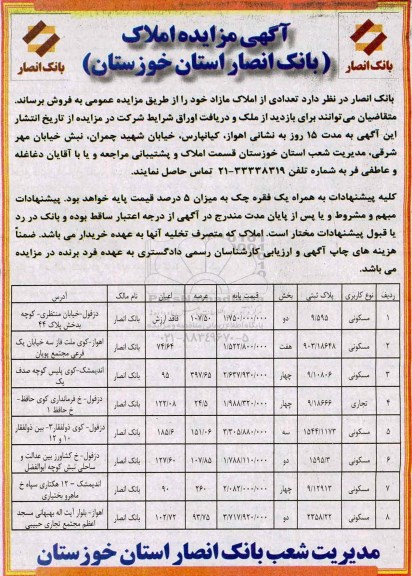 آگهی مزایده املاک
(بانک انصار استان خوزستان)
بانک انصار
بانک انصار
بانک انصار در نظر دارد تعدادی از املاک مازاد خود را از طریق مزایده عمومی به فروش برساند.
متقاضیان می‌توانند برای بازدید از ملک و دریافت اوراق شرایط شرکت در مزایده از تاریخ انتشار
این آگهی به مدت ۱۵ روز به نشانی اهواز، کیانپارس، خیابان شهید چمران، نبش خیابان مهر
شرقی، مدیریت شعب استان خوزستان قسمت املاک و پشتیبانی مراجعه و یا با آقایان دغاغله
و عاطفی فر به شماره تلفن ۳۳۳۳۸۳۱۹-۲۱ تماس حاصل نمایند.
کلیه پیشنهادات به همراه یک فقره چک به میزان ۵ درصد قیمت پایه خواهد بود. پیشنهادات
مبهم و مشروط و یا پس از پایان مدت مندرج در آگهی از درجه اعتبار ساقط بوده و بانک در رد
یا قبول پیشنهادات مختار است. املاک که متصرف تخلیه آنها به عهده خریدار می باشد. ضمناً
هزینه های چاپ آگهی و ارزیابی کارشناسان رسمی دادگستری به عهده فرد برنده در مزایده
می باشد.
ردیف نوع کاربری پلاک ثبتی بخش قیمت پایه عرصه اعیان نام مالک آدرس
۱ مسکونی ۹/۵۹۵ دو ۱/۷۵۰/۰۰۰/۰۰۰ ۱۰۷/۵۰ فاقد ارزش بانک انصار دزفول-خیابان منتظری- کوچه بدخش پلاک ۴۴
۲ مسکونی ۹۰۳/۱۸۶۴۸ هفت ۱/۵۲۲/۸۰۰/۰۰۰ ۷۴/۶۴ بانک انصار اهواز-کوی ملت فاز سه خیابان یک فرعی مجتمع پویان
۳ مسکونی ۹/۱۰۸۰۶ چهار ۲/۶۳۷/۹۳۰/۰۰۰ ۳۹۷/۶۵ ۹۵ بانک انصار اندیمشک-کوی پلیس کوچه صدف یک
۴ تجاری ۹/۱۸۶۶۶ چهار ۱/۹۸۸/۳۲۰/۰۰۰ ۲۴/۵ ۱۲۲/۰۸ بانک انصار دزفول- خ فرمانداری کوی حافظ- خ حافظ ۱
۵ مسکونی ۱۵۴۴/۱۱۷۳ سه ۳/۳۰۵/۸۸۰/۰۰۰ ۱۵۱/۰۶ ۱۸۵/۶ بانک انصار دزفول- کوی ذولفقار۳- بین ذولفقار ۱۰ و ۱۲
۶ مسکونی ۱۵۹۵/۳ دو ۱/۷۸۸/۱۱۰/۰۰۰ ۱۰۷/۸۵ ۱۲۷/۶۰ بانک انصار دزفول- خ کشاورز بین عدالت و ساحلی نبش کوچه ابوالفضل
۷ مسکونی ۹/۱۲۹۱۳ چهار ۲/۰۸۲/۰۰۰/۰۰۰ ۲۶۰ ۹۰ بانک انصار اندیمشک - ۱۲ هکتاری سپاه خ ماهرو بختیاری
۸ مسکونی ۲۳۵۸/۲۲ دو ۳/۷۱۷/۹۲۰/۰۰۰ ۹۳/۷۵ ۱۰۲/۷۲ بانک انصار اهواز- بلوار آیت اله بهبهانی مسجد اعظم مجتمع تجاری حبیبی
مدیریت شعب بانک انصار استان خوزستان